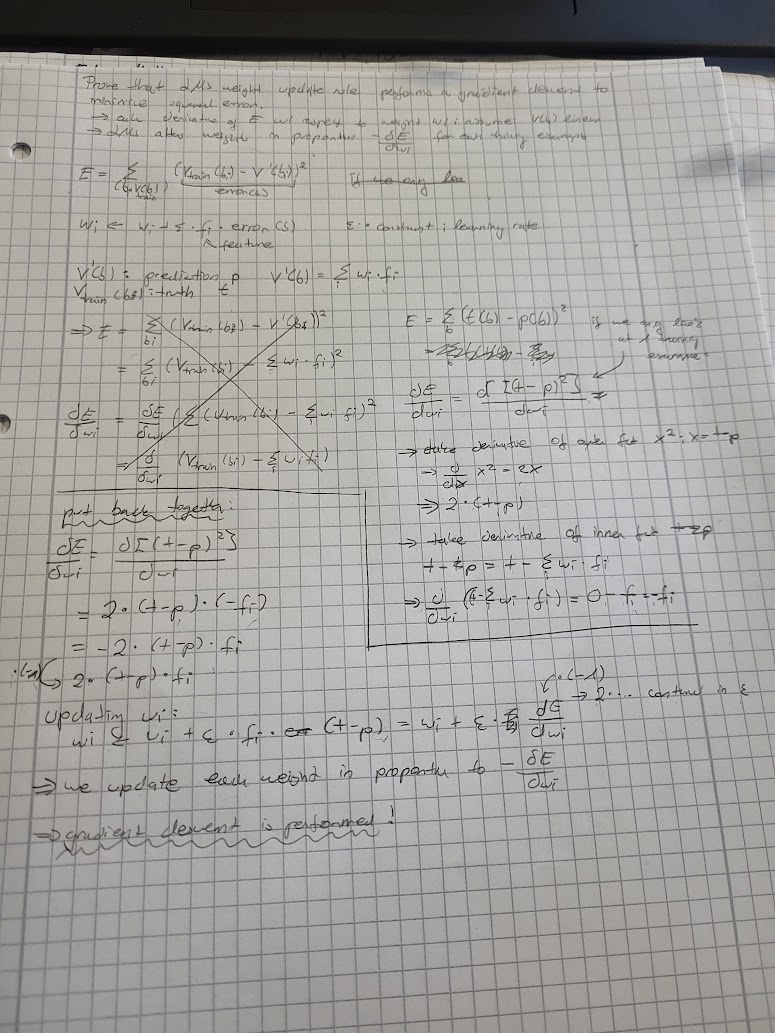 Prove that LMS weight update rule performs a gradient descent to
minimize squared error.
→ calc derivative of E w/ respect to weight wi; assume: V'(b) linear
→ LMS alter weight in proportion -δE/δwi for each training example
E = Σ (Vtrain(bi) - V'(bi))²
(b,Vtrain(b)) error(s)
wi ← wi + ε · fi · error(s) ε = constant; learning rate
feature
V'(b): prediction p V'(b) = Σ wi · fi
Vtrain(bi): truth t
⇒ E = Σbi (Vtrain(bi) - V'(bi))²
= Σbi (Vtrain(bi) - Σ wi · fi)²
δE/δwi = δE/δwi (Σ (Vtrain(bi) - Σ wi fi)²
= δ/δwi (Vtrain(bi) - Σ wi fi)
E = Σb (t(b) - p(b))² if we only look
at 1 training
example:
dE/dwi = d[(t-p)²]/dwi =
→ take derivative of outer fct x²; x = t-p
→ d/dx x² = 2x
⇒ 2·(t-p)
→ take derivative of inner fct t-p
t-p = t - Σ wi · fi
⇒ d/dwi (t-Σ wi · fi) = 0 - fi = -fi
put back together:
δE/δwi = δ[(t-p)²]/δwi
= 2·(t-p)·(-fi)
= -2·(t-p)·fi
·(-1) → 2·(t-p)·fi
updating wi: ·(-1) → 2... constant in ε
wi ← wi + ε · fi · (t-p) = wi + ε · dE/dwi
⇒ we update each weight in proportion to - δE/δwi
⇒ gradient descent is performed!